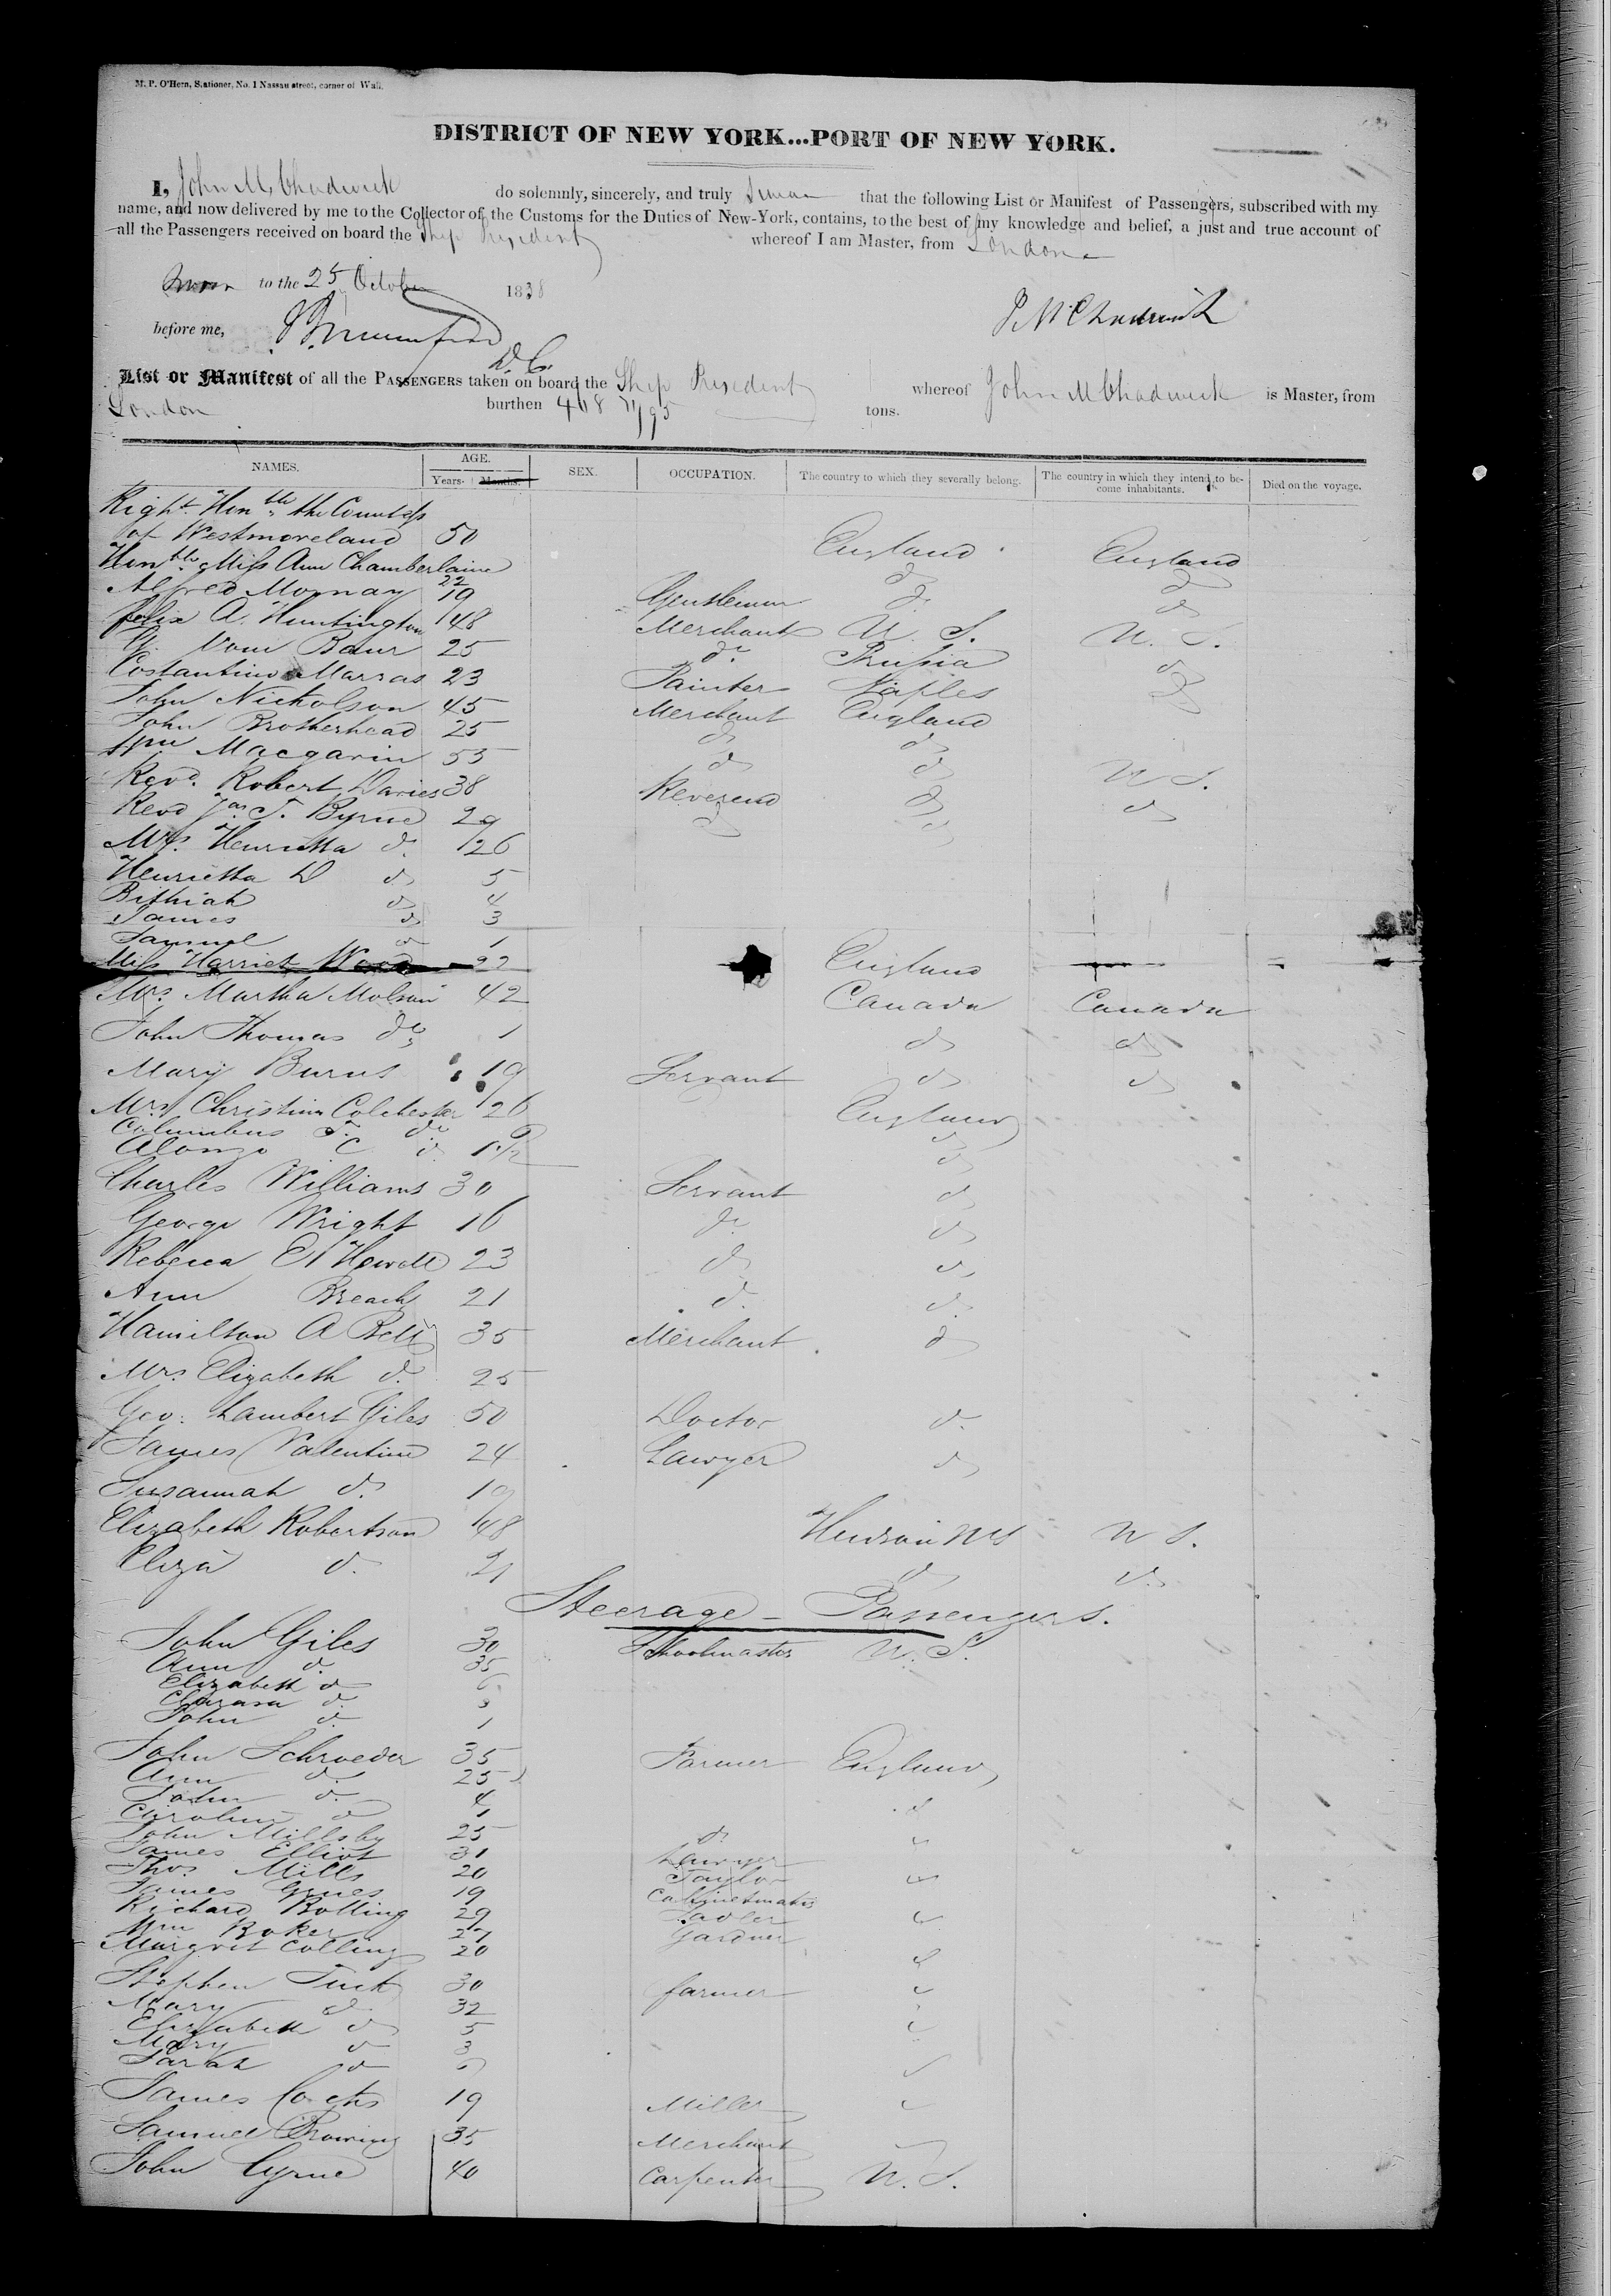 M. P. O'Hern, Stationer, No. 1 Nassau street, corner of Wall.
DISTRICT OF NEW YORK...PORT OF NEW YORK.
I, John M Chadwick do solemnly, sincerely, and truly swear that the following List or Manifest of Passengers, subscribed with my
name, and now delivered by me to the Collector of the Customs for the Duties of New-York, contains, to the best of my knowledge and belief, a just and true account of
all the Passengers received on board the Ship President whereof I am Master, from London
Sworn to the 25 October 1838
J M Chadwick
before me,
D. C.
List or Manifest of all the PASSENGERS taken on board the Ship President whereof John M Chadwick is Master, from
London burthen 468 71/95 tons.
NAMES. AGE. SEX. OCCUPATION. The country to which they severally belong. The country in which they intend to become inhabitants. Died on the voyage.
Years. Months.
Right Honble the Countess
of Westmoreland 50 England England
Honble Miss Ann Chamberlaine 22 do do
Alfred Mornay 19 Gentleman do do
Felix A. Huntington 48 Merchant U. S. U. S.
vom Baur 25 do Prussia do
Costantino Marras 23 Painter Naples do
John Nicholson 45 Merchant England
John Brotherhead 25 do do
Wm Macgavin 55 do do
Revd. Robert Davies 38 Reverend do U S.
Revd Jas. T. Byrne 29 do do do
Mrs. Henrietta do 26
Henrietta D do 5
Bithiah do 4
James do 3
Samuel do 1
Miss Harriet Wood 22 England
Mrs. Martha Molson 42 Canada Canada
John Thomas do 1 do do
Mary Burns 19 Servant do do
Mrs Christina Colchester 26 England
Columbus T. do do
Alonzo C do 1 1/2 do
Charles Williams 30 Servant do
George Wright 16 do do
Rebecca Howell 23 do do
Ann Breach 21 do do
Hamilton A Bell 35 Merchant do
Mrs. Elizabeth do 25
Geo. Lambert Giles 50 Doctor do
James Valentine 24 Lawyer do
Susannah do 19
Elizabeth Robertson 48 Hudson U S.
Eliza do 21 do do
Steerage - Passengers.
John Giles 30 Schoolmaster U. S.
Ann do 35
Elizabeth do 6
do 3
John do 1
John Schroeder 35 Farmer England
Ann do 25
John do 4
Caroline do 1
John Millsby 25 do
James Elliot 31 Lawyer
Thos Mills 20 Taylor
James 19 Cabinetmaker
Richard Bolling 29 Sadler
Wm Baker 27 Gardner
Margret Colling 20
Stephen Tuck 30 farmer
Mary do 32
Elizabeth do 5
Mary do 3
Sarah do
James 19 Miller
Samuel Browning 35 Merchant
John Cyrne 40 Carpenter U. S.